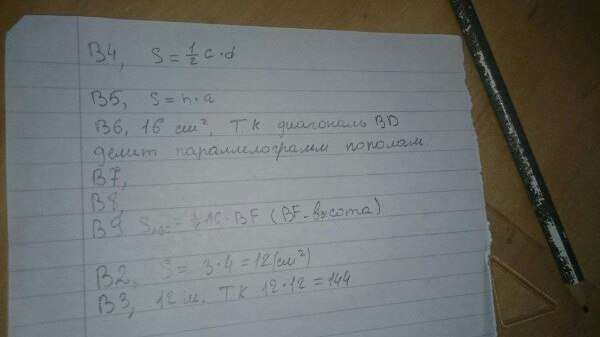 В4, S = 1/2 c · d
В5, S = h · a
В6, 16 см², т к диагональ BD
делит параллелограмм пополам
В7,
В8,
В9 = 1/2 AC · BF (BF - высота)
В2, S = 3 · 4 = 12 (см²)
В3, 12 м, т к 12 · 12 = 144